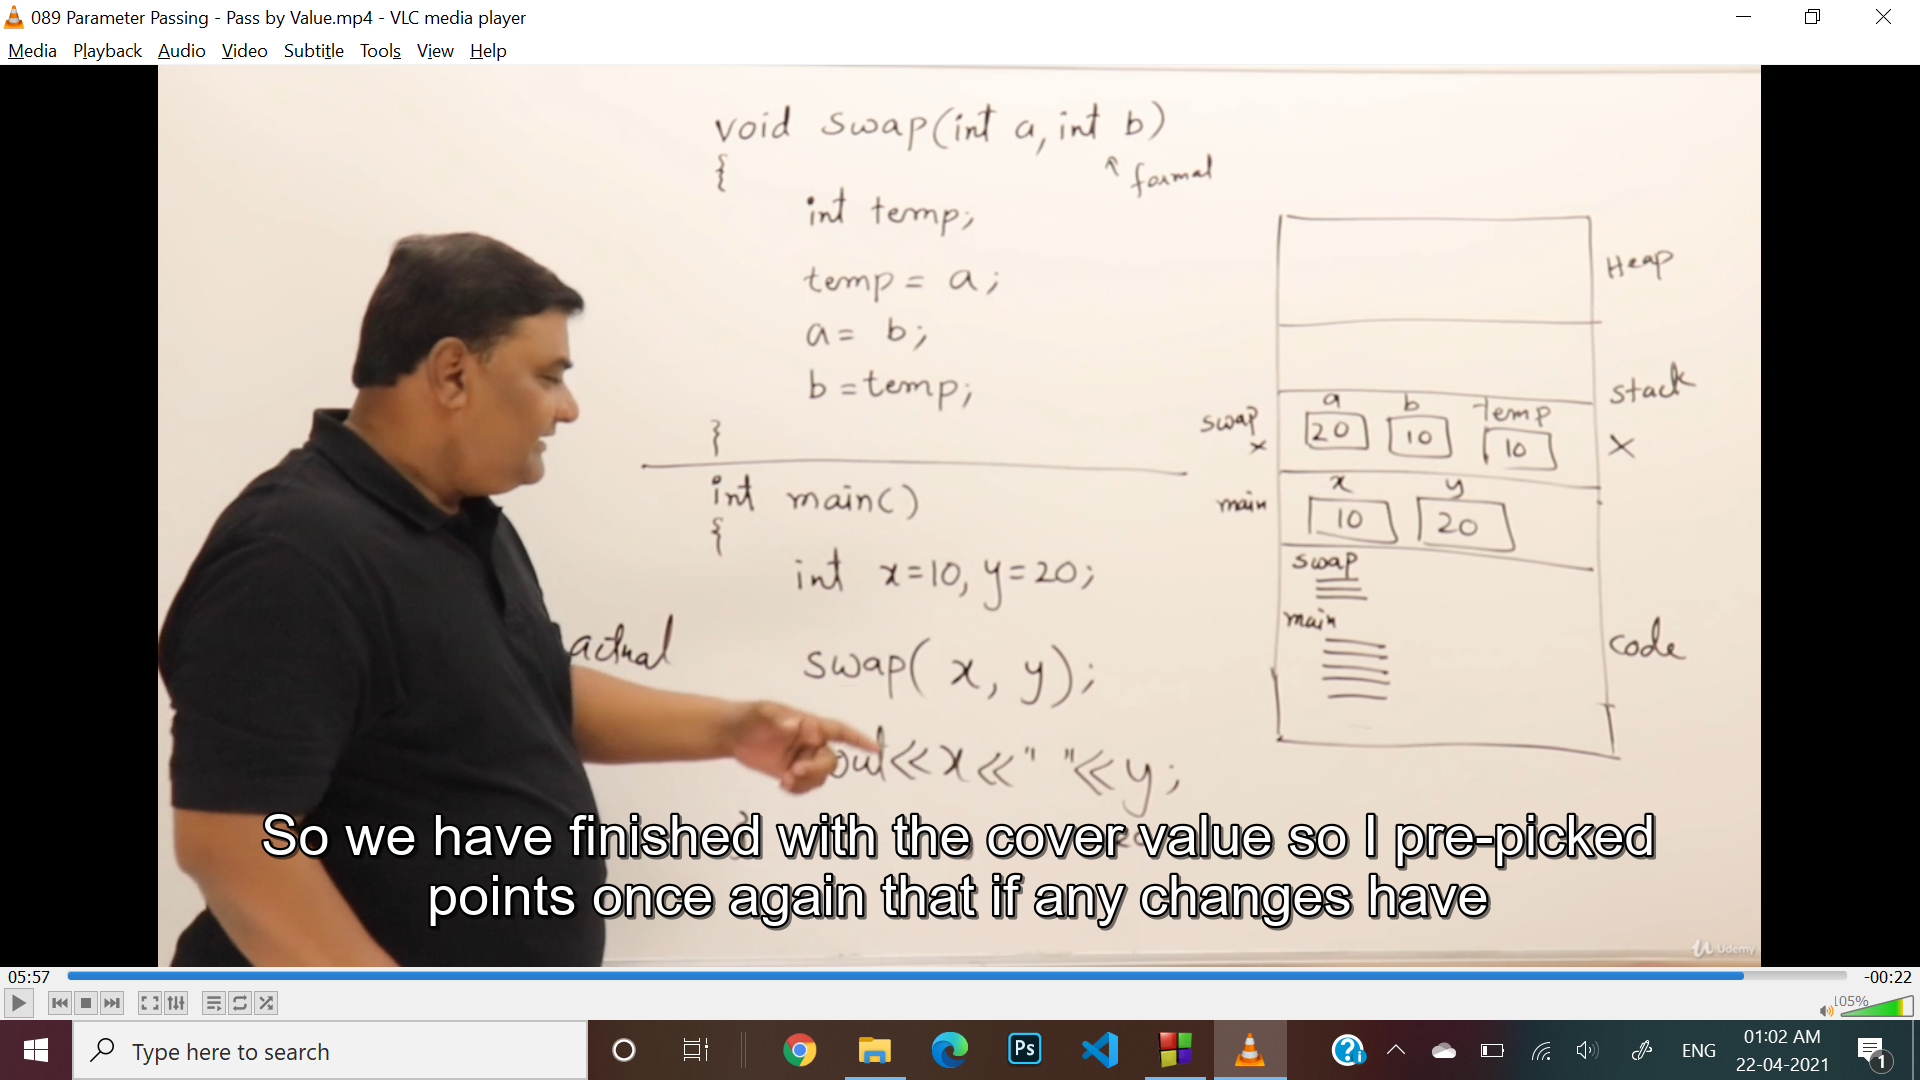 089 Parameter Passing - Pass by Value.mp4 - VLC media player
Media Playback Audio Video Subtitle Tools View Help
void swap(int a, int b)
{
↑ formal
int temp;
temp = a;
a = b;
b = temp;
}
int main()
{
int x=10, y=20;
actual
swap( x, y);
out<<x<<" "<<y;
Heap
stack
swap
x
a b temp
20 10 10
X
main
x y
10 20
swap
main
code
So we have finished with the cover value so I pre-picked
points once again that if any changes have
Udemy
05:57
-00:22
105%
Type here to search
Ps
ENG
01:02 AM
22-04-2021
1